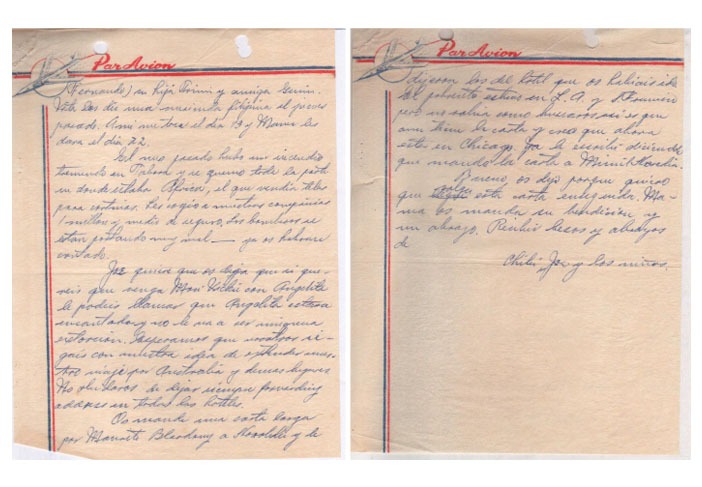 Par Avion
(Fernando) su hija Trini y amiga
Vita les dio una merienda filipina el jueves
pasado. A mi me toca el día 19 y Mamá les
dará el día 22.
El mes pasado hubo un incendio
tremendo en y se quemó toda la parte
en donde estaba Africa, el que vendía telas
para cortinas. Les cogió a nuestras compañías
1 millón y medio de seguro. Los bomberos se
están portando muy mal — ya os habrán
contado.
Joe quiere que os diga que si que-
reis que venga Mari Vicki con Angelita
le podeis llamar que Angelita estará
encantada y no le va a ser ninguna
extorsión. Esperamos que vosotros si-
gais con nuestra idea de extender vues-
tro viaje por Australia y demas lugares
No olvidaros de dejar siempre forwarding
address en todos los hoteles.
Os mandé una carta larga
por a Honolulu y le
Par Avion
dijeron los del hotel que os habiais ido
El pobrecito estuvo en L.A. y S. Francisco
pero no sabía como buscaros asi es que
aun tiene la carta y creo que ahora
esta en Chicago. Ya le escribí diciendole
que mandase la carta a
Bueno, os dejo porque quiero
que salga esta carta enseguida. Ma-
ma os manda su bendicion y
un abrazo. Recibid besos y abrazos
de
Chibi, Joe y los niños.